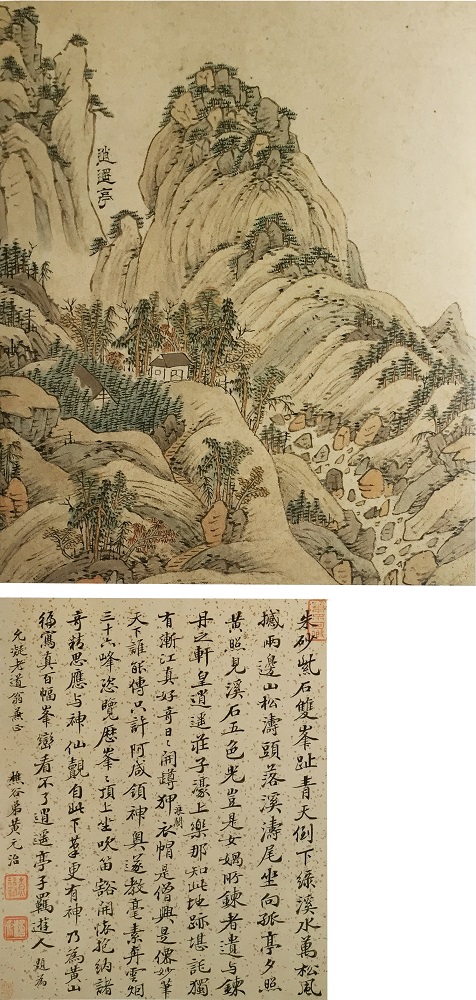 逍遥亭
朱砂紫石雙峯趾青天倒下綠溪水萬松風
撼兩邊山松濤頭落溪濤尾坐向孤亭夕照
黄照見溪石五色光豈是女媧所鍊者遺与鍊
丹之軒皇逍遥莊子濠上樂那知此地跡堪託獨
有漸江真好奇日〻開狎衣帽是僧興是僊妙筆
天下誰能傳只許阿咸領神奧遂教毫素奔雲烟
三十六峰恣覽歷峯〻頂上坐吹笛豁開懷抱納諸
奇精思應与神仙覿自此下筆更有神乃為黄山
徧寫真百幅峯巒看不了逍遥亭子羈遊人 題為
允凝老道翁兼正
樵谷弟黄元治